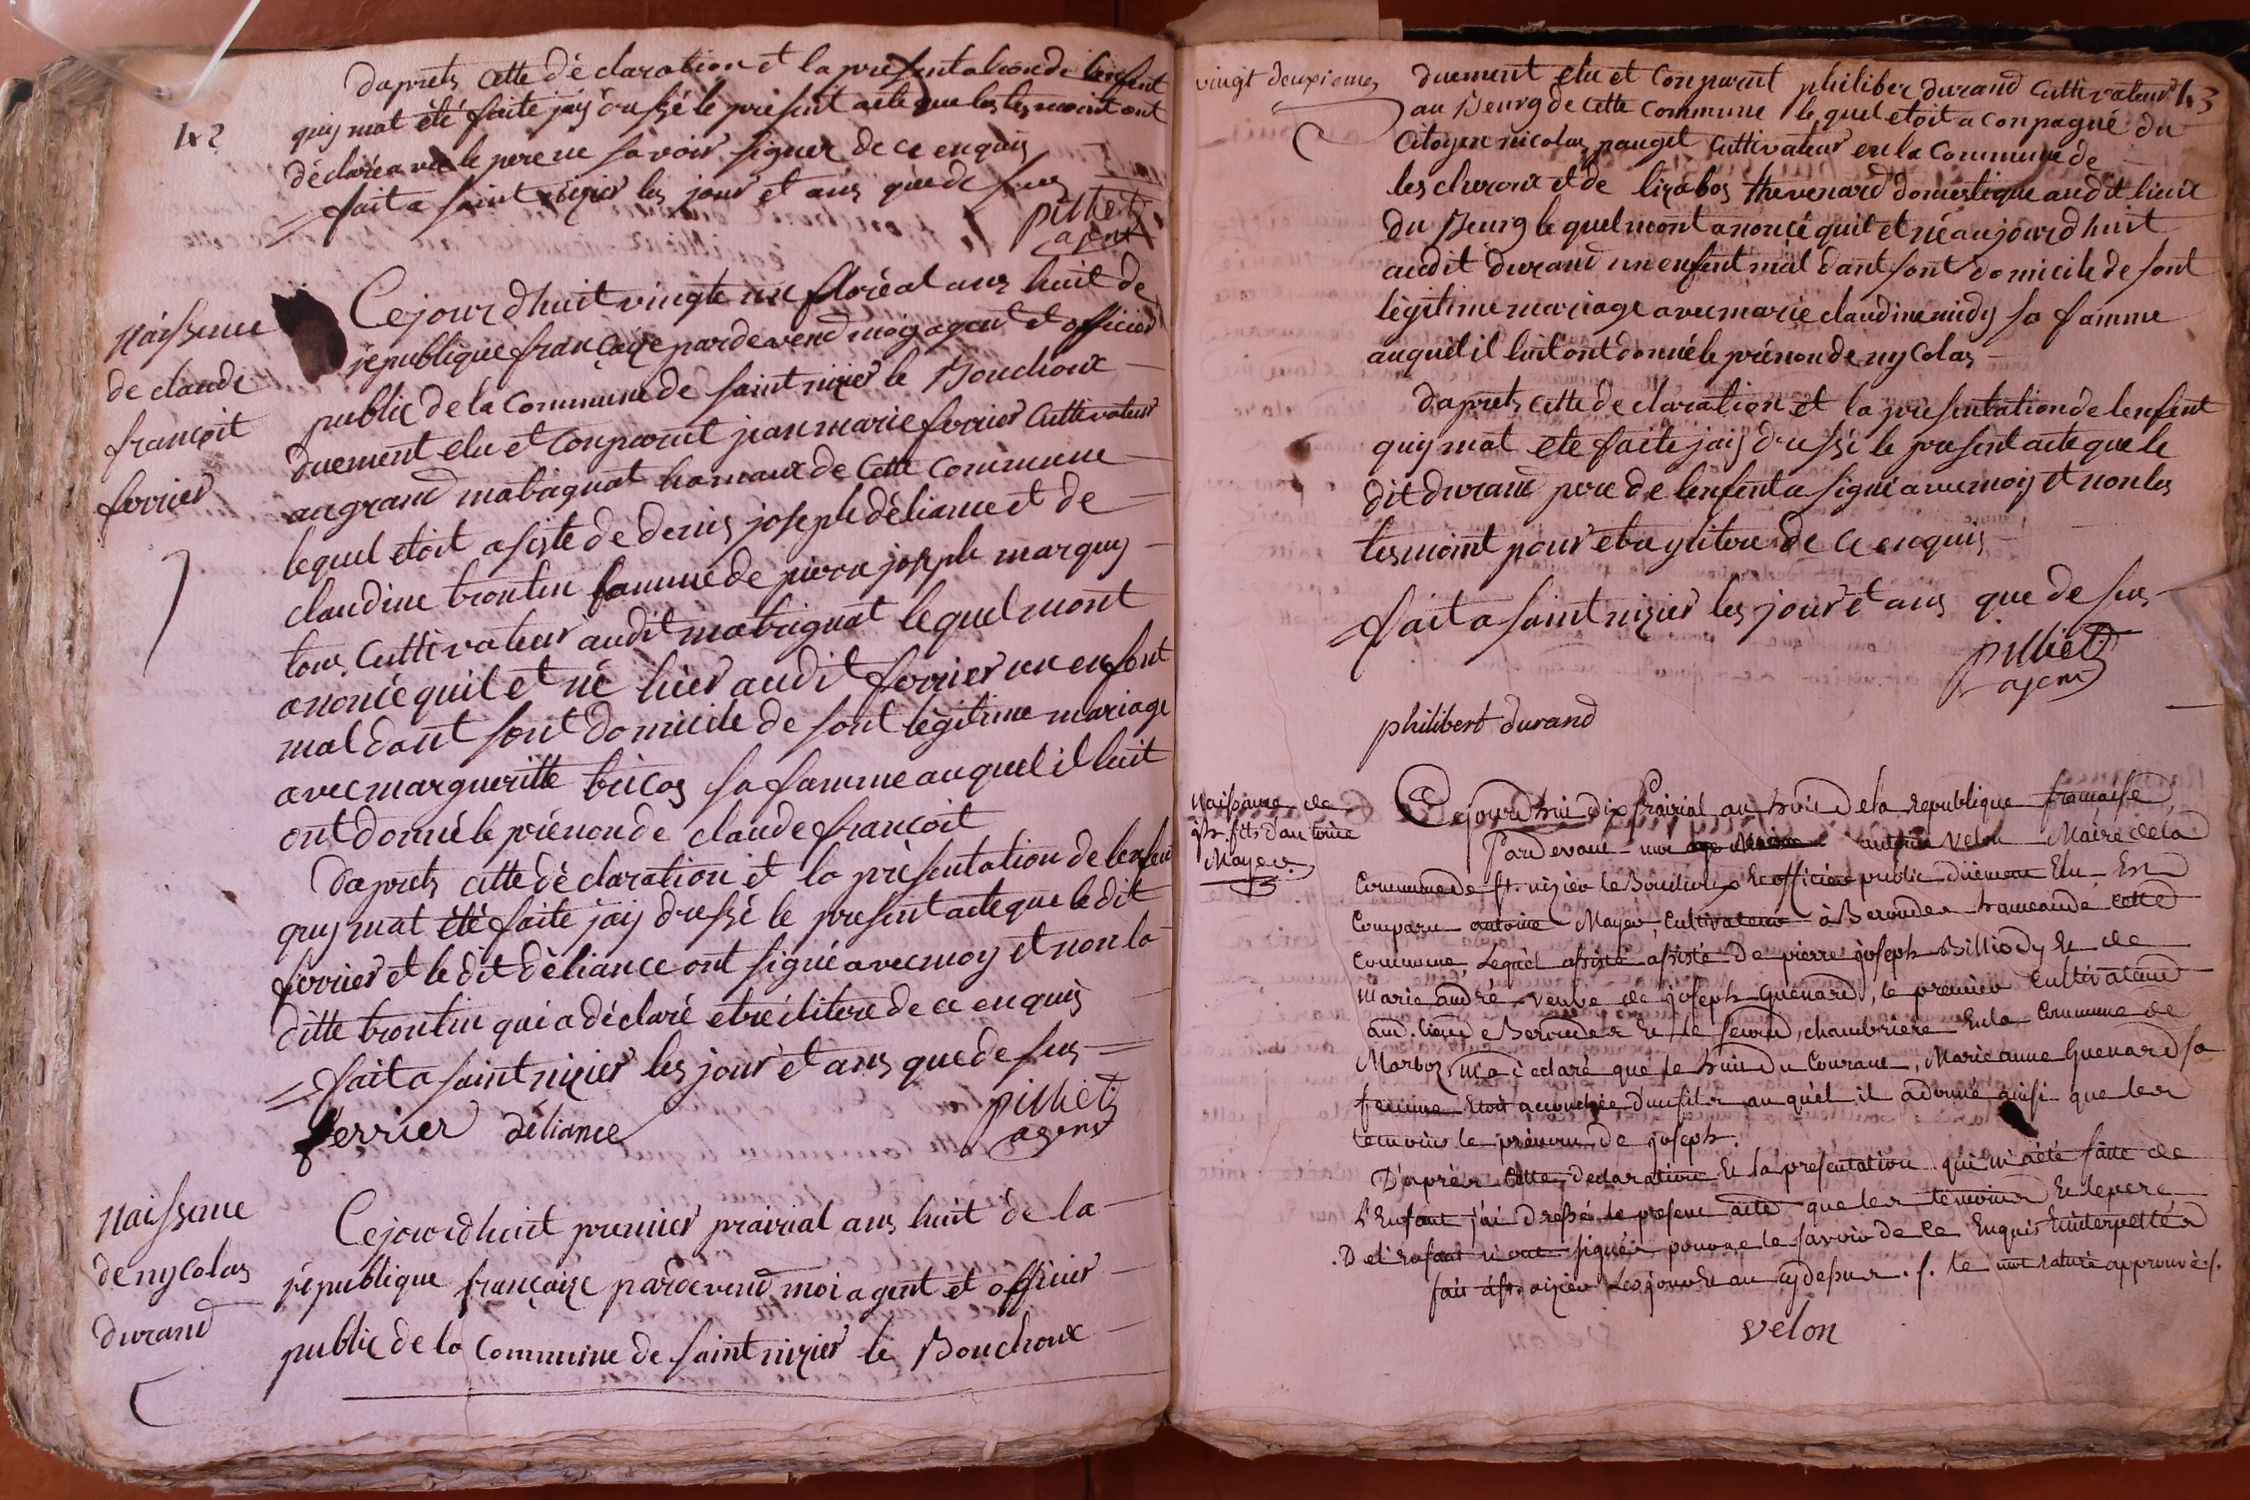 142
daprets cette déclaration et la presentation de lenfent
quij mat été faite jaij dressé le présent acte que les tesmoint ont
déclaré avec le pere ne savoir signer de ce enquis
fait a saint nizier les jour et ans que de sus
pilliet
agent
Naissence
de claude
françoit
ferrier
Cejourdhuit vingte un floréal ans huit de
republique françaize pardevend moij agent et officier
public de la Commune de saint nizier le Bouchoux
duement elu et Conparut jean marie ferrier Cultivateur
au grand mabaguat hamaux de Cette Commune
lequel etoit asiste de denis joseph déliance et de
claudine trontin famme de pierre joseph marquis
tous Cultivateur audit mabaguat lequel mont
anoncé quil et né hier audit ferrier un enfent
mal dant sont domicile de sont légitime mariage
avec margueritte bricos sa famme auquel il luit
ont donné le prénon de claude françoit
daprets cette déclaration et la présentation de lenfent
quij mat été faite jaij dressé le present acte que le dit
ferrier et le dit déliance ont signé avec moy et non la
ditte trontin qui a déclaré etre ilitere de ce enquis
fait a saint nizier les jour et ans que de sus
ferrier déliance pilliet
agent
Naissence
de nycolas
durand
Cejourdhuit premier prairial ans huit de la
république françaize pardevend moi agent et officier
public de la Commune de saint nizier le Bouchoux
vingt deuxieme
143
duement elu et Conparut philiber durand Cultivateur
au Beurg de Cette Commune lequel etoit a conpagné du
Citoyen nicolas pauget Cultivateur en la Commune de
les cheroux et de lizabos thevenard domestique audit lieux
du Beurg lequel mont anoncé quil et né aujourdhuit
audit durand un enfent mal dant sont domicile de sont
légitime mariage avec marie claudine midy sa famme
auquel il luit ont donné le prénon de nycolas
daprets cette declaration et la presentation de lenfent
quij mat eté faite jaij dressé le present acte que le
dit durand pere de lenfent a signé avec moij et non les
tesmoint pour etre ilitere de ce enquis
fait a saint nizier les jour et ans que de sus
pilliet
agent
philibert durand
Naissance de
jph fils d'antoine
Mayer
Cejourdhui dix Prairial an huit de la republique française
Pardevant moi antoine Velon Maire de la
Commune de st. nizier le Bouchoux et officier public duement Elu Est
Comparu antoine Mayer, Cultivateur à Beroudes hameau de cette
Commune, Lequel assisté assisté De pierre joseph Billiody et de
Marie andré veuve de joseph Guenard, le premier Cultivateur
aud. lieu de Beroudes et la second, chambriere En la Commune de
Marboz, m'a declaré que le huit du Courant, Marie anne Guenard sa
femme Etoit accouchée d'un fils auquel il a donné ainsi que les
temoins le prénom de joseph.
D'après Cette, declaration et la présentation qui m'a été faite de
L'Enfant j'ai dressé le present acte que les temoins et le pere
De l'Enfant n'ont signés pour ne le savoir de Ce Enquis Et interpellés
fait à st. nizier Les jour et an cy dessus. /. le mot raturé approuvé /.
velon